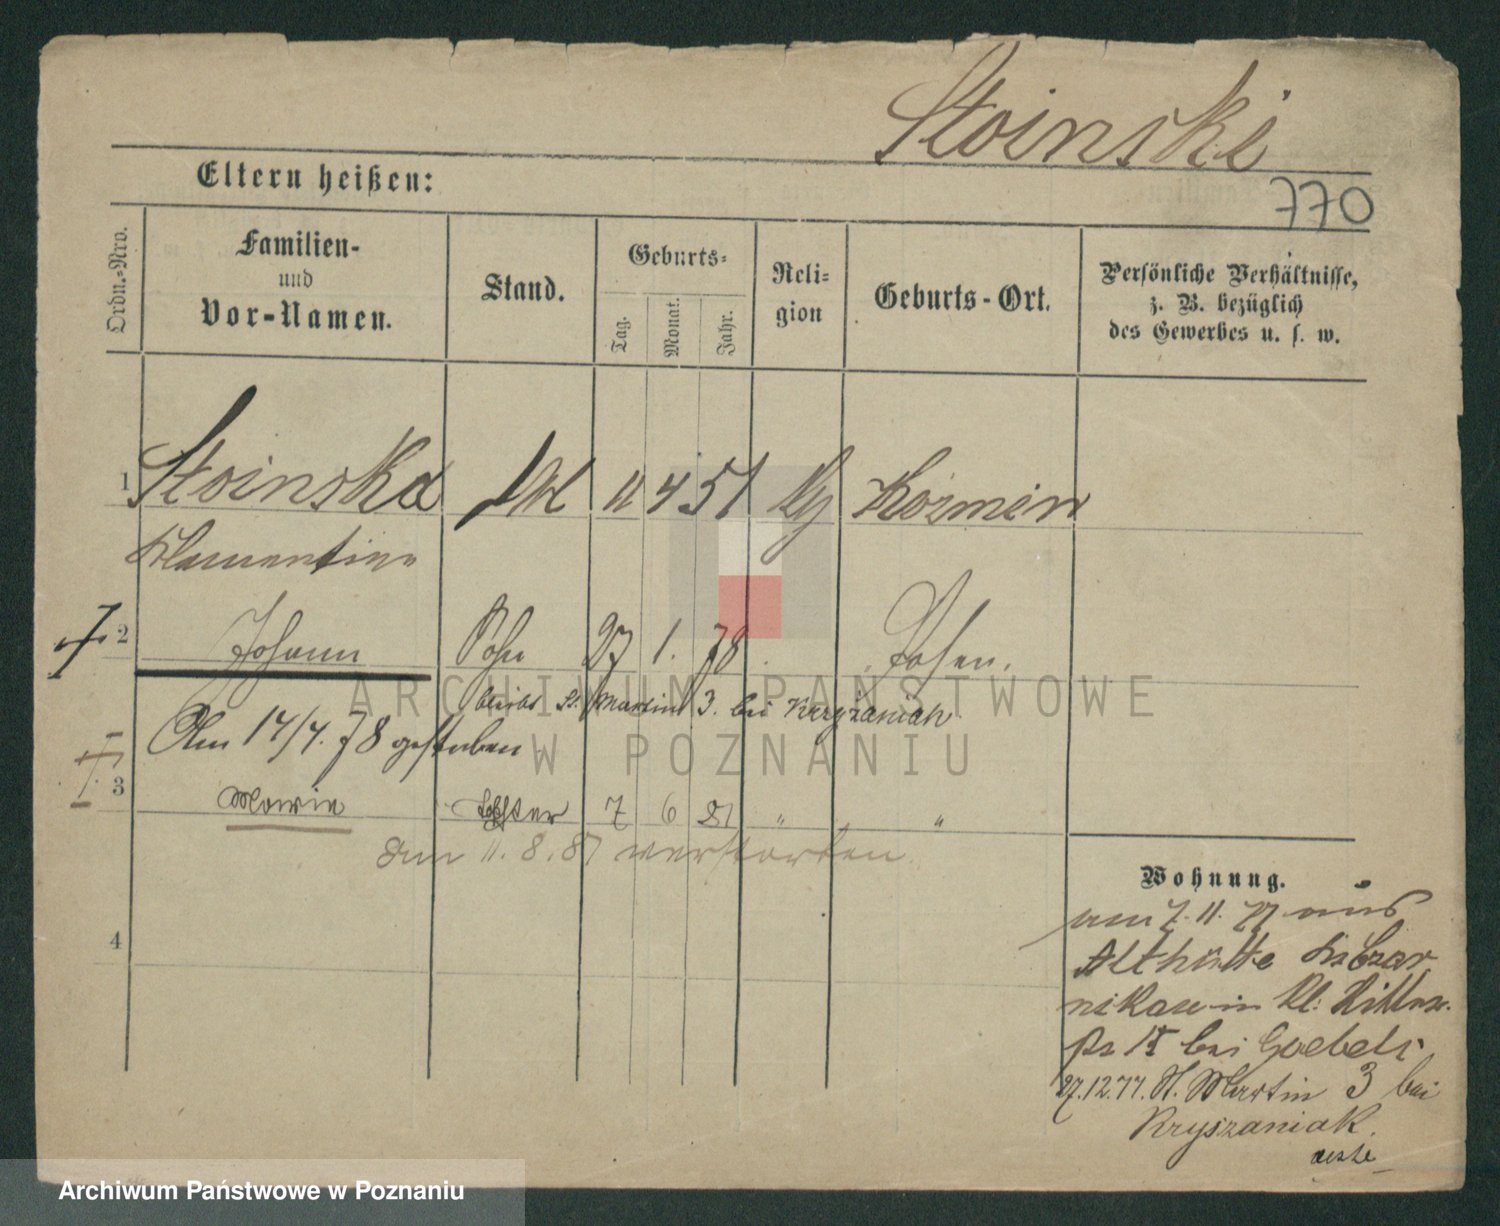 Stoinski
770
Eltern heißen:
Ordn.-Nro.
Familien-
und
Vor-Namen.
Stand.
Geburts-
Tag.
Monat.
Jahr.
Reli-
gion
Geburts-Ort.
Persönliche Verhältnisse,
z. B. bezüglich
des Gewerbes u. s. w.
1 Stoinska 4 51 Kozmin
Klementine
2 Johann Sohn 27 1. 78 Posen.
St. Martin 3. bei Kryzaniak
Am 14/4. 78 gestorben
3 Marie Tochter 7 6 81 " "
am 11. 8. 87 verstorben
4
Wohnung.
am 7. 11. 77 aus
Althütte Kr. Czar
nikau in Kl. Ritter
bei Goebels
27.12.77. St. Martin 3 bei
Kryszaniak.
ARCHIWUM PAŃSTWOWE
W POZNANIU
Archiwum Państwowe w Poznaniu